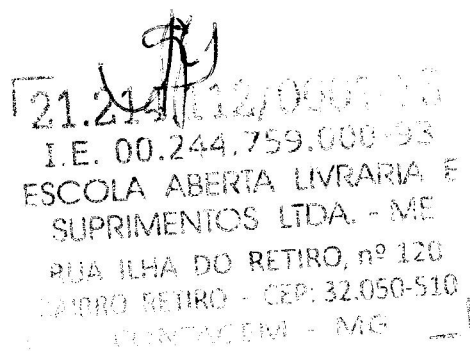 I.E. 00.244.759.000-93
ESCOLA ABERTA LIVRARIA E
SUPRIMENTOS LTDA. - ME
RUA ILHA DO RETIRO, nº 120
BAIRRO RETIRO - CEP: 32.050-510
CONTAGEM - MG